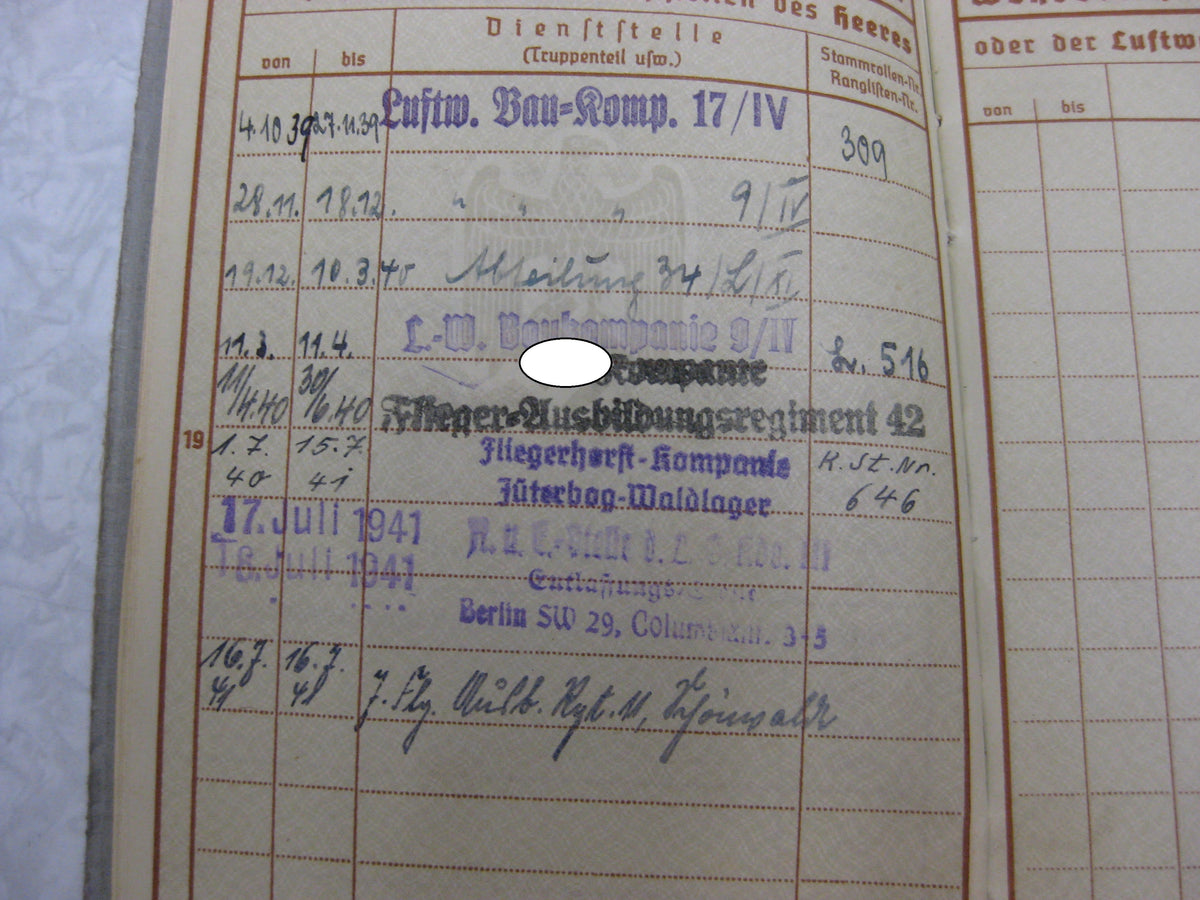 des Heeres
Dienststelle
(Truppenteil usw.)
von bis
Stammrollen-Nr.
Ranglisten-Nr.
4.10 39 27.11.39 Luftw. Bau=Komp. 17/IV 309
28.11. 18.12. " " " 9/IV
19.12. 10.3.40 Abteilung 34/L/XI
11.3. 11.4. L.-W. Baukompanie 9/IV Lr. 516
Kompanie
11/4.40 30/6.40 Flieger=Ausbildungsregiment 42
19
1.7. 15.7. Fliegerhorst-Kompanie K.St.Nr.
40 41 Jüterbog-Waldlager 646
17. Juli 1941
16. Juli 1941
Entlassungs
Berlin SW 29, 3-5
16.7. 16.7.
41 41 7. Flg. Ausb. Rgt. 11, Schönwalde
oder der Luftw
von bis